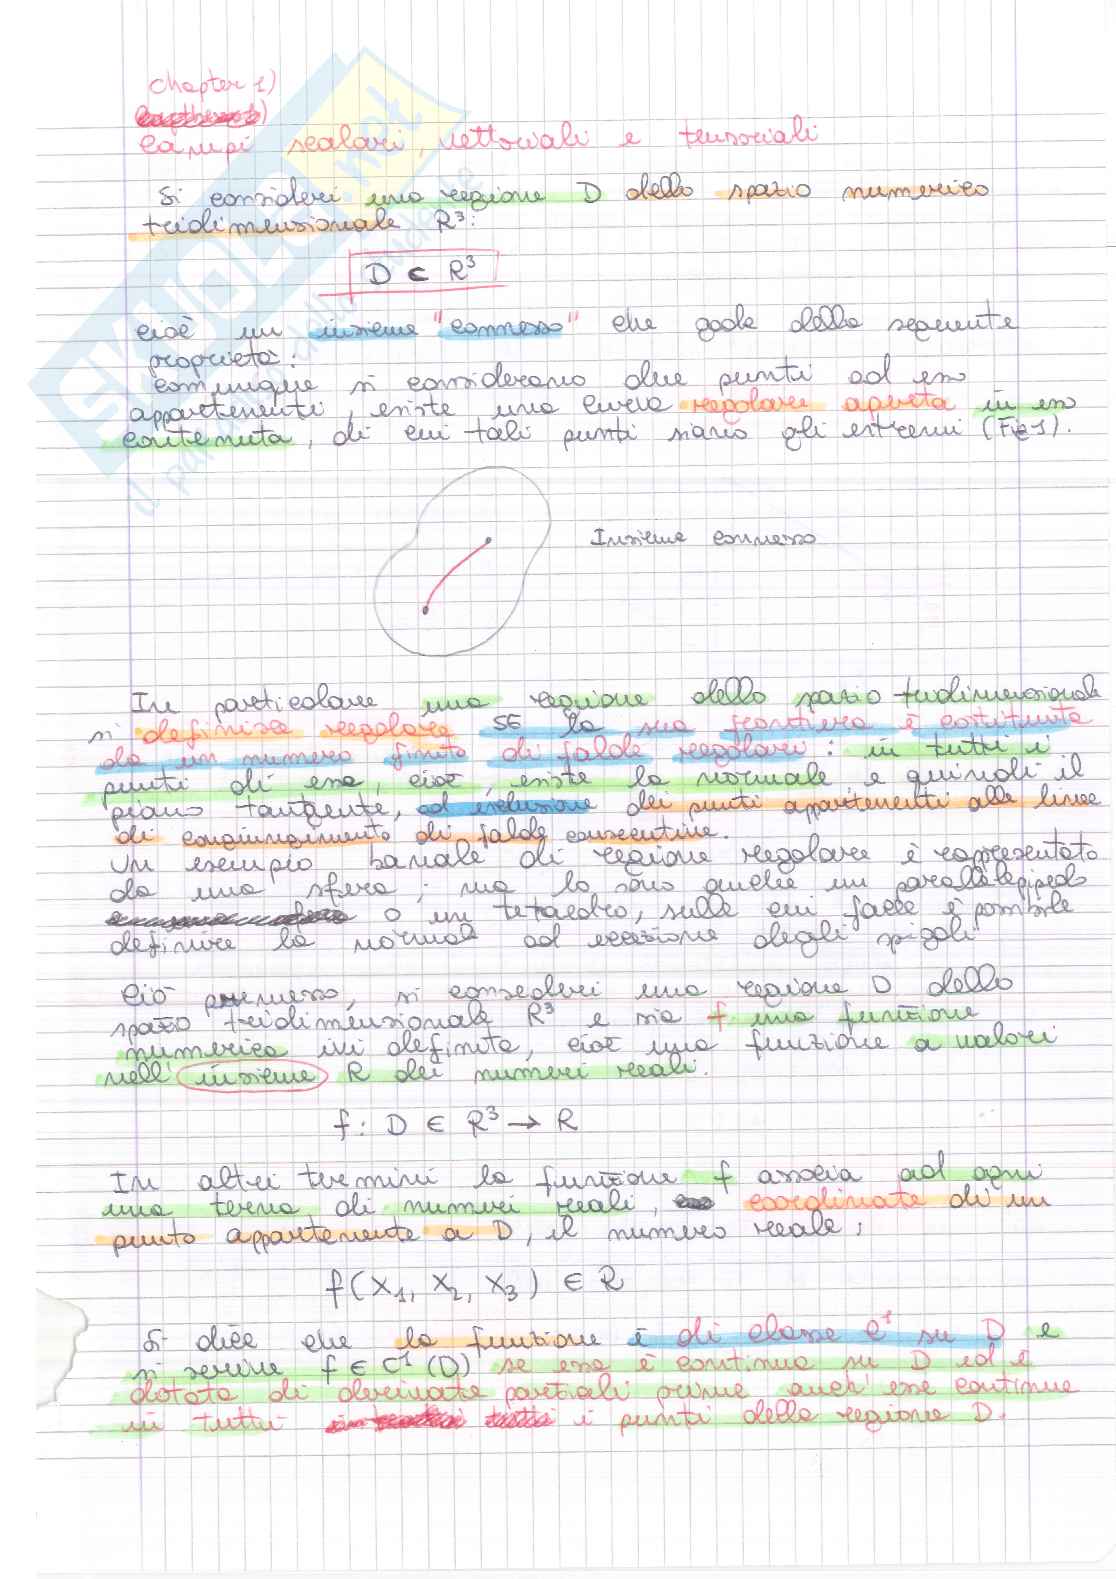 chapter 1)
campi scalari, vettoriali e tensoriali
Si consideri una regione D dello spazio numerico
tridimensionale R³:
D ⊂ R³
cioè un insieme "connesso" che gode della seguente
proprietà:
comunque si considerano due punti ad esso
appartenenti, esiste una curva regolare aperta in esso
contenuta, di cui tali punti siano gli estremi (Fig 1).
Insieme connesso
In particolare una regione dello spazio tridimensionale
si definisce regolare SE la sua frontiera è costituita
da un numero finito di falde regolari: in tutti i
punti di essa, cioè, esiste la normale, e quindi il
piano tangente, ad esclusione dei punti appartenenti alle linee
di congiungimento di falde consecutive.
Un esempio banale di regione regolare è rappresentato
da una sfera; ma lo sono anche un parallelepipedo
o un tetraedro, sulle cui facce è possibile
definire la normale ad eccezione degli spigoli
Ciò premesso, si consideri una regione D dello
spazio tridimensionale R³ e sia f una funzione
numerica ivi definita, cioè una funzione a valori
nell' insieme R dei numeri reali.
f: D ∈ R³ → R
In altri termini la funzione f associa ad ogni
una terna di numeri reali, coordinate di un
punto appartenente a D, il numero reale;
f(X₁, X₂, X₃) ∈ R
Si dice che la funzione è di classe C¹ su D e
si scrive f ∈ C¹ (D) se essa è continua su D ed è
dotata di derivate parziali prime anch'esse continue
in tutti i punti della regione D.
SKUOLA.net